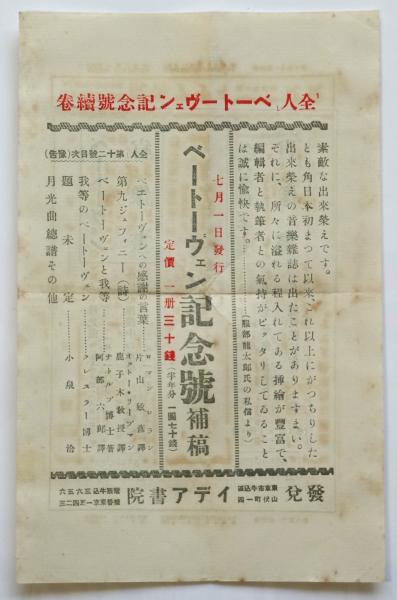 「全人」ベートーヴェン記念號續卷
素敵な出來榮えです。
とも角日本初まつて以來、これ以上にがつちりした
出來榮えの音樂雜誌は出たことがありますまい。
それに、所々に溢れる程入れてある挿繪が豐富で、
編輯者と執筆者との氣持がピッタリしてゐること
は誠に愉快です。
(服部龍太郎氏の私信より)
七月一日發行
ベートーヴェン記念號補稿
定價一册三十錢(半年分一圓七十錢)
全人 第十二號目次(豫告)
ベエトーヴェンへの感謝の言葉
ロマン・ロラン
片山敏彦譯
第九シュフィニー(詩)
オットー・リープマン
鹿子木敎授譯
ベートーヴェンと我等
ナトルプ博士著
阿部六郎譯
我等のベートーヴェン
クレスラー博士
題未定
小泉洽
月光曲總譜その他
發兌
東京市牛込區
山伏町一四
イデア書院
電話牛込六五六三
振替東京一五四二三